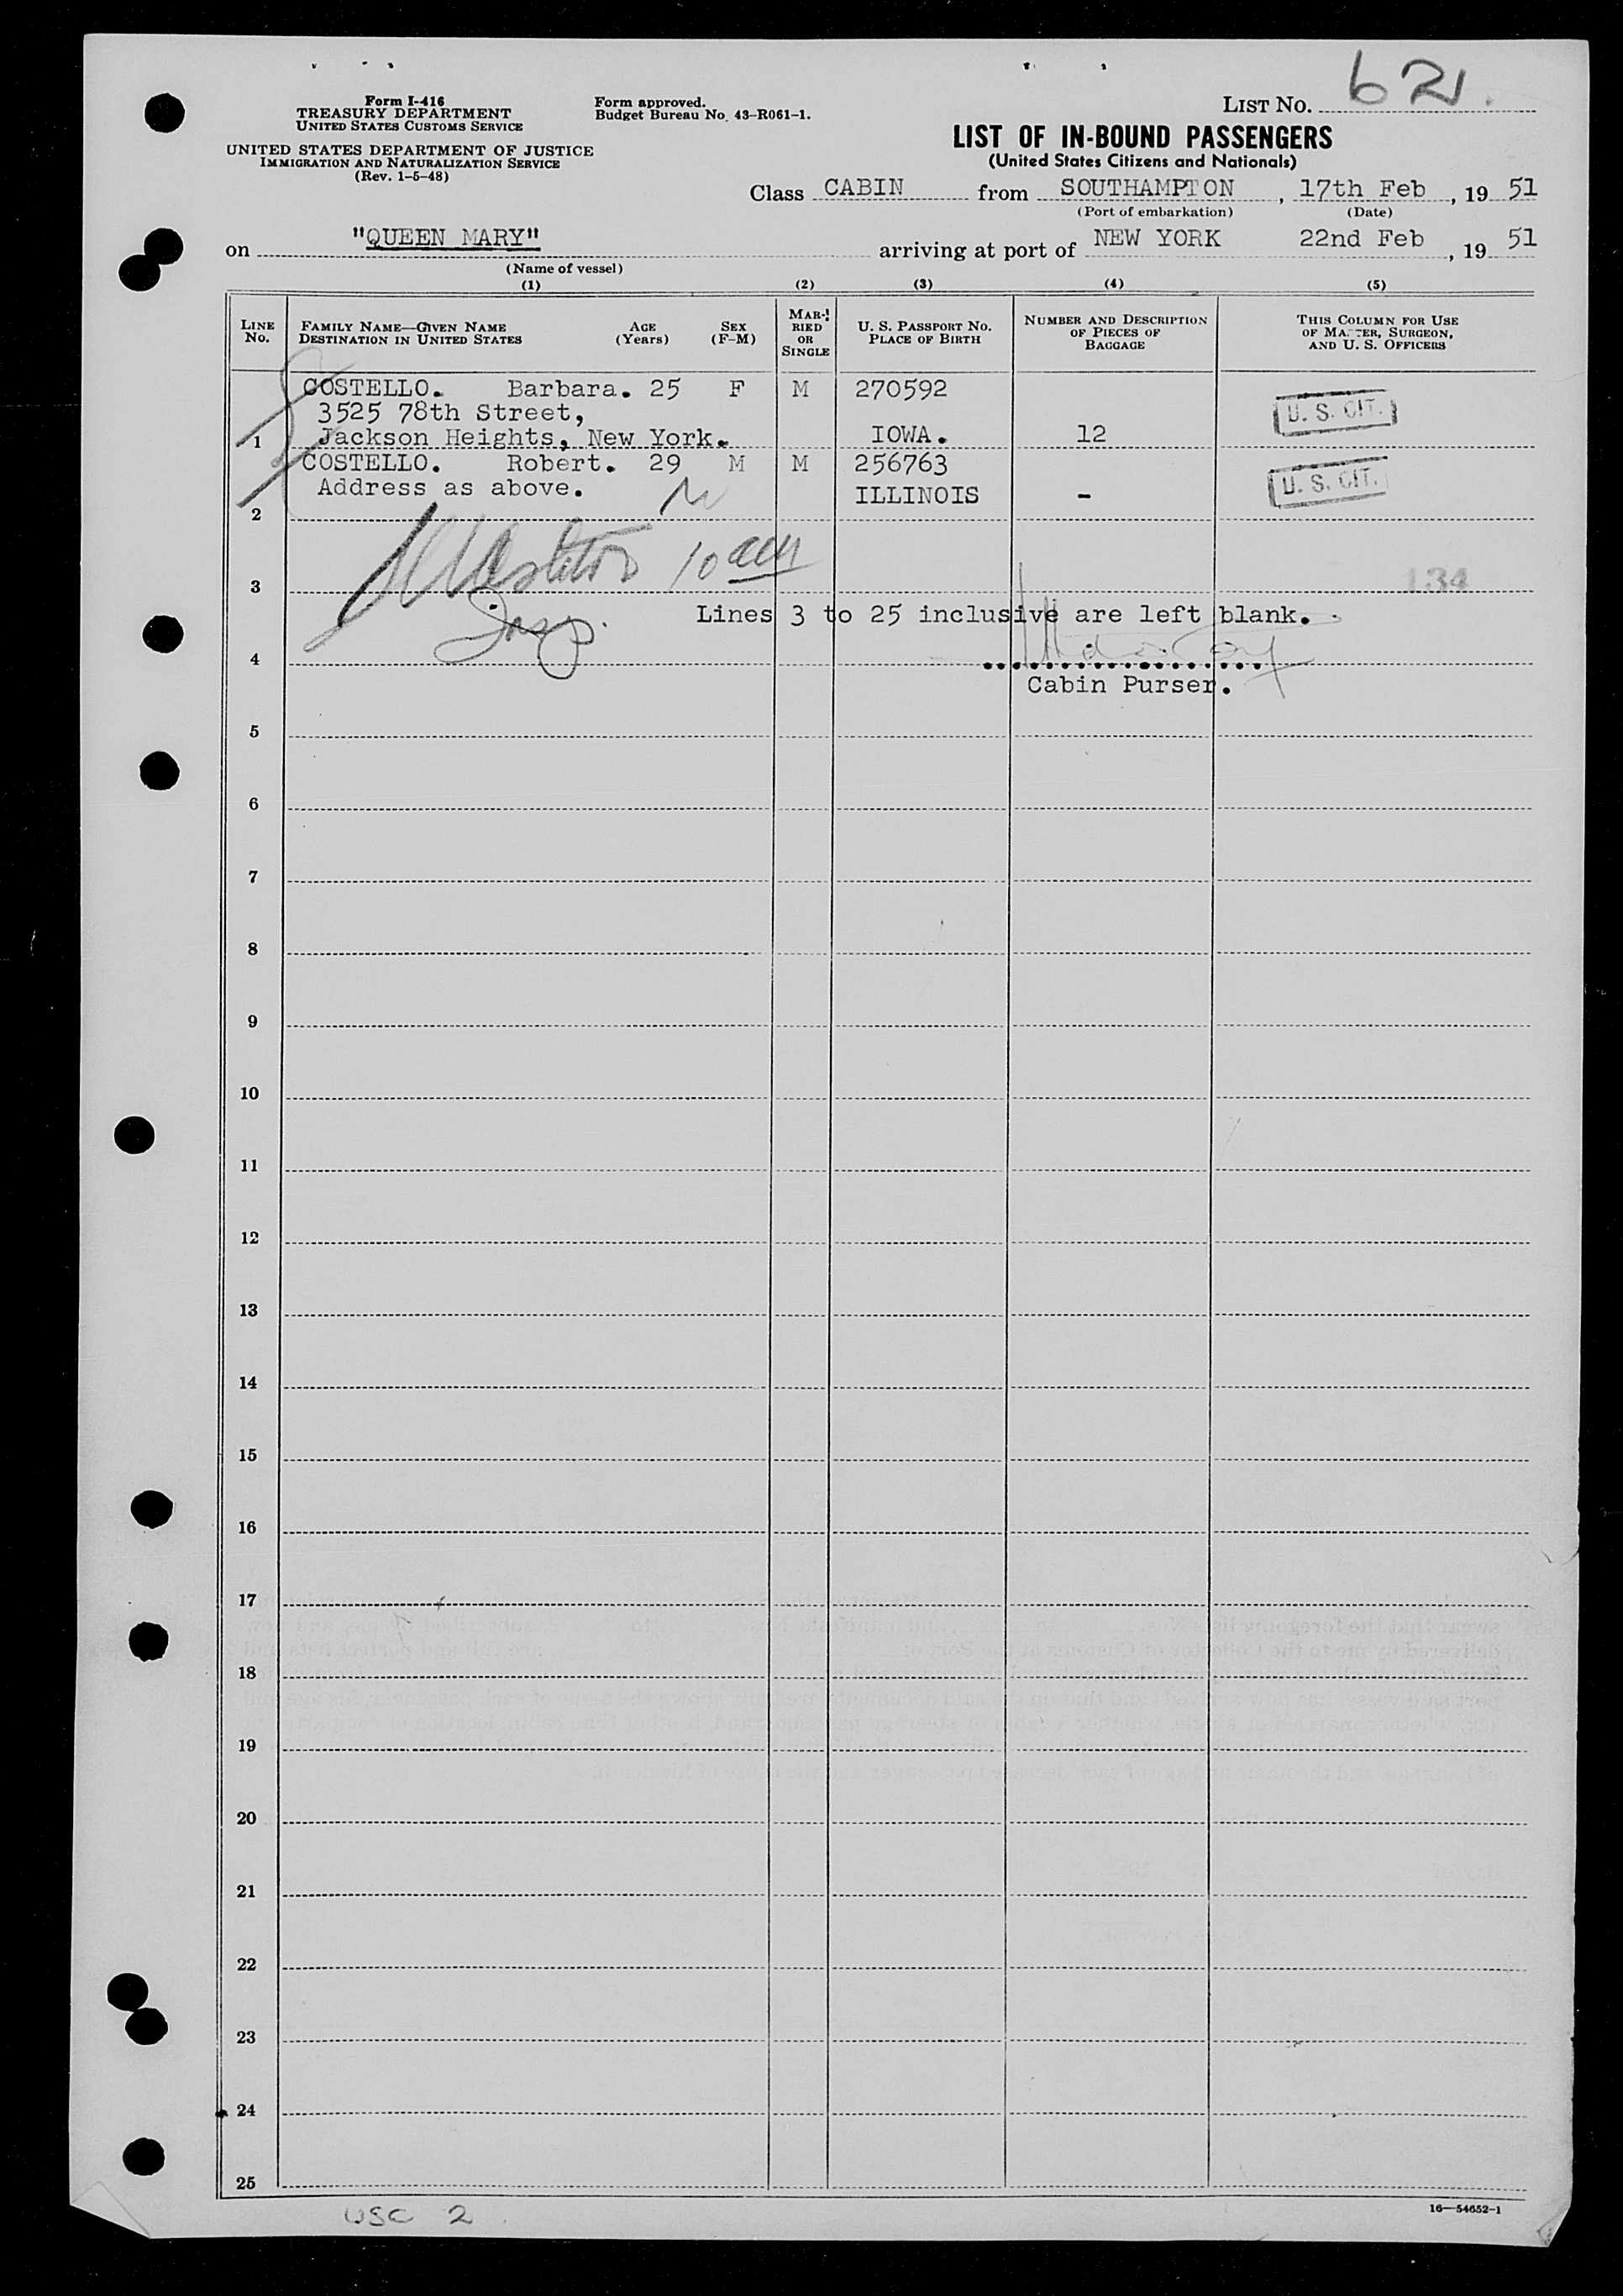 Form I-416
TREASURY DEPARTMENT
UNITED STATES CUSTOMS SERVICE
UNITED STATES DEPARTMENT OF JUSTICE
IMMIGRATION AND NATURALIZATION SERVICE
(Rev. 1-5-48)
Form approved.
Budget Bureau No. 43-R061-1.
LIST No. 621.
LIST OF IN-BOUND PASSENGERS
(United States Citizens and Nationals)
Class CABIN from SOUTHAMPTON, 17th Feb, 19 51
(Port of embarkation) (Date)
on "QUEEN MARY" arriving at port of NEW YORK 22nd Feb, 19 51
(Name of vessel)
(1) (2) (3) (4) (5)
LINE No.
FAMILY NAME—GIVEN NAME
DESTINATION IN UNITED STATES
AGE (Years)
SEX (F-M)
MARRIED OR SINGLE
U. S. PASSPORT No.
PLACE OF BIRTH
NUMBER AND DESCRIPTION OF PIECES OF BAGGAGE
THIS COLUMN FOR USE OF MASTER, SURGEON, AND U. S. OFFICERS
COSTELLO. Barbara. 25 F M 270592 U. S. CIT.
3525 78th Street,
1 Jackson Heights, New York. IOWA. 12
COSTELLO. Robert. 29 M M 256763 U. S. CIT.
Address as above. ILLINOIS -
2
10 am
3 134
Insp. Lines 3 to 25 inclusive are left blank.
4
Cabin Purser.
5
6
7
8
9
10
11
12
13
14
15
16
17
18
19
20
21
22
23
24
25
USC 2
16—54652-1